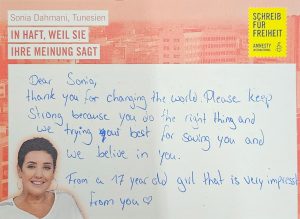 Sonia Dahmani, Tunesien
IN HAFT, WEIL SIE
IHRE MEINUNG SAGT
SCHREIB
FÜR
FREIHEIT
AMNESTY
INTERNATIONAL
Dear Sonia,
thank you for changing the world. Please keep
strong because you do the right thing and
we trying your best for saving you and
we belive in you.
From a 17 year old girl that is very impress
from you ♡